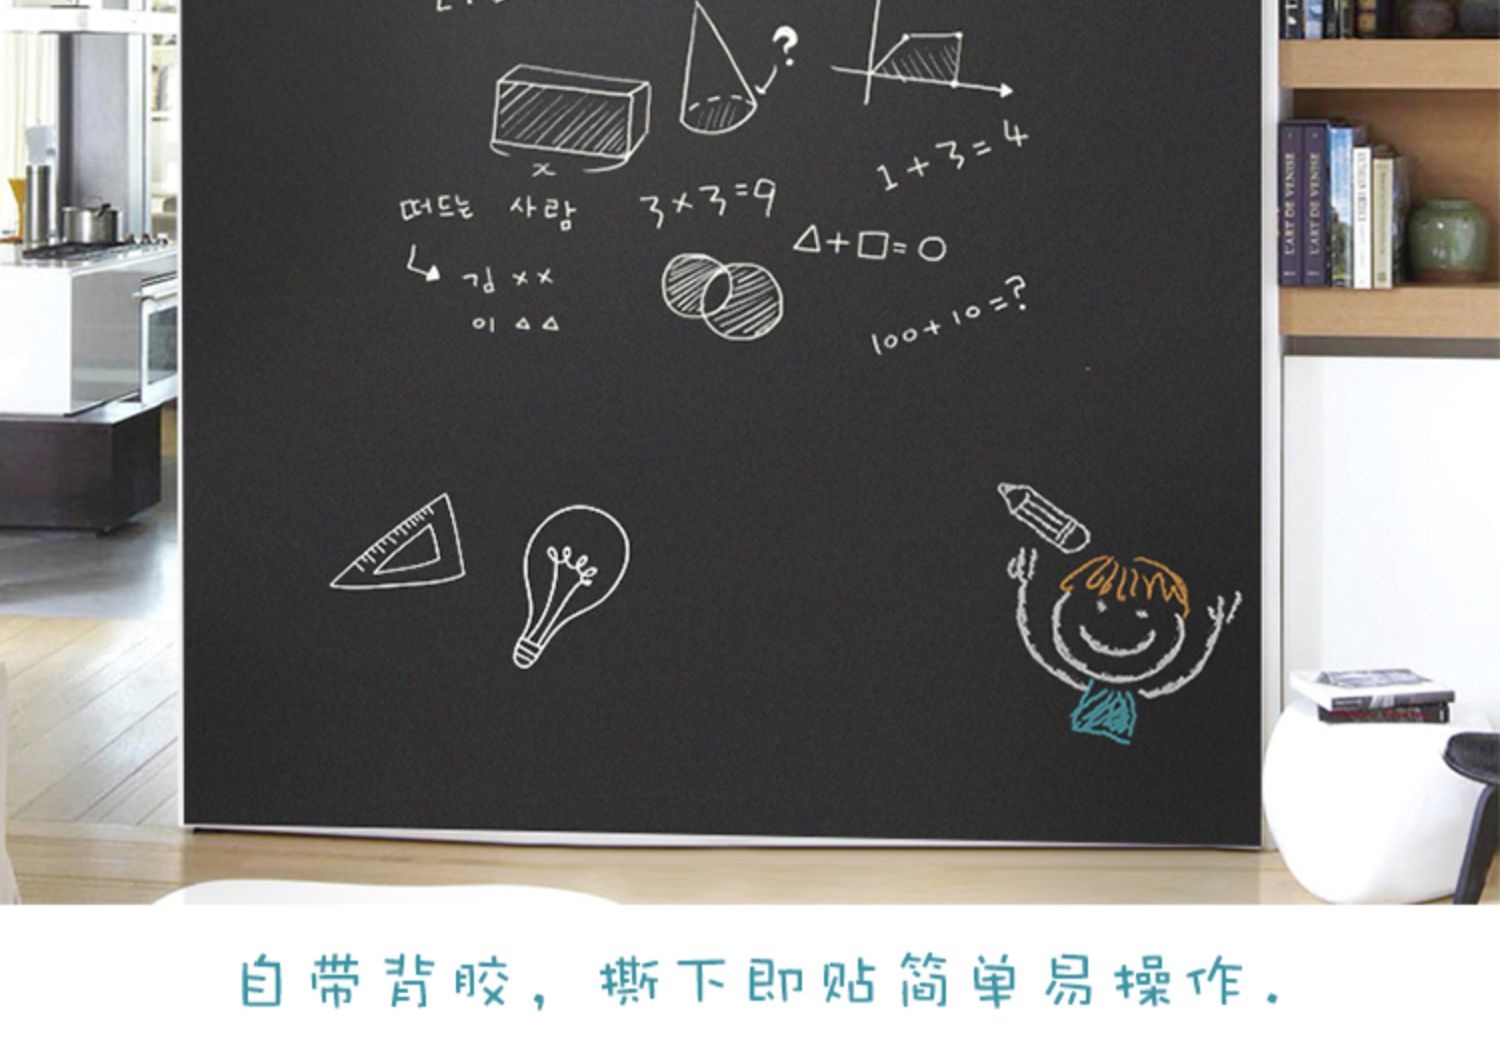 1+3=4
떠드는 사람
3×3=9
△+□=○
김 ××
이 △△
100+10=?
?
x
L'ART DE VENISE
L'ART DE VENISE
自带背胶，撕下即贴简单易操作.